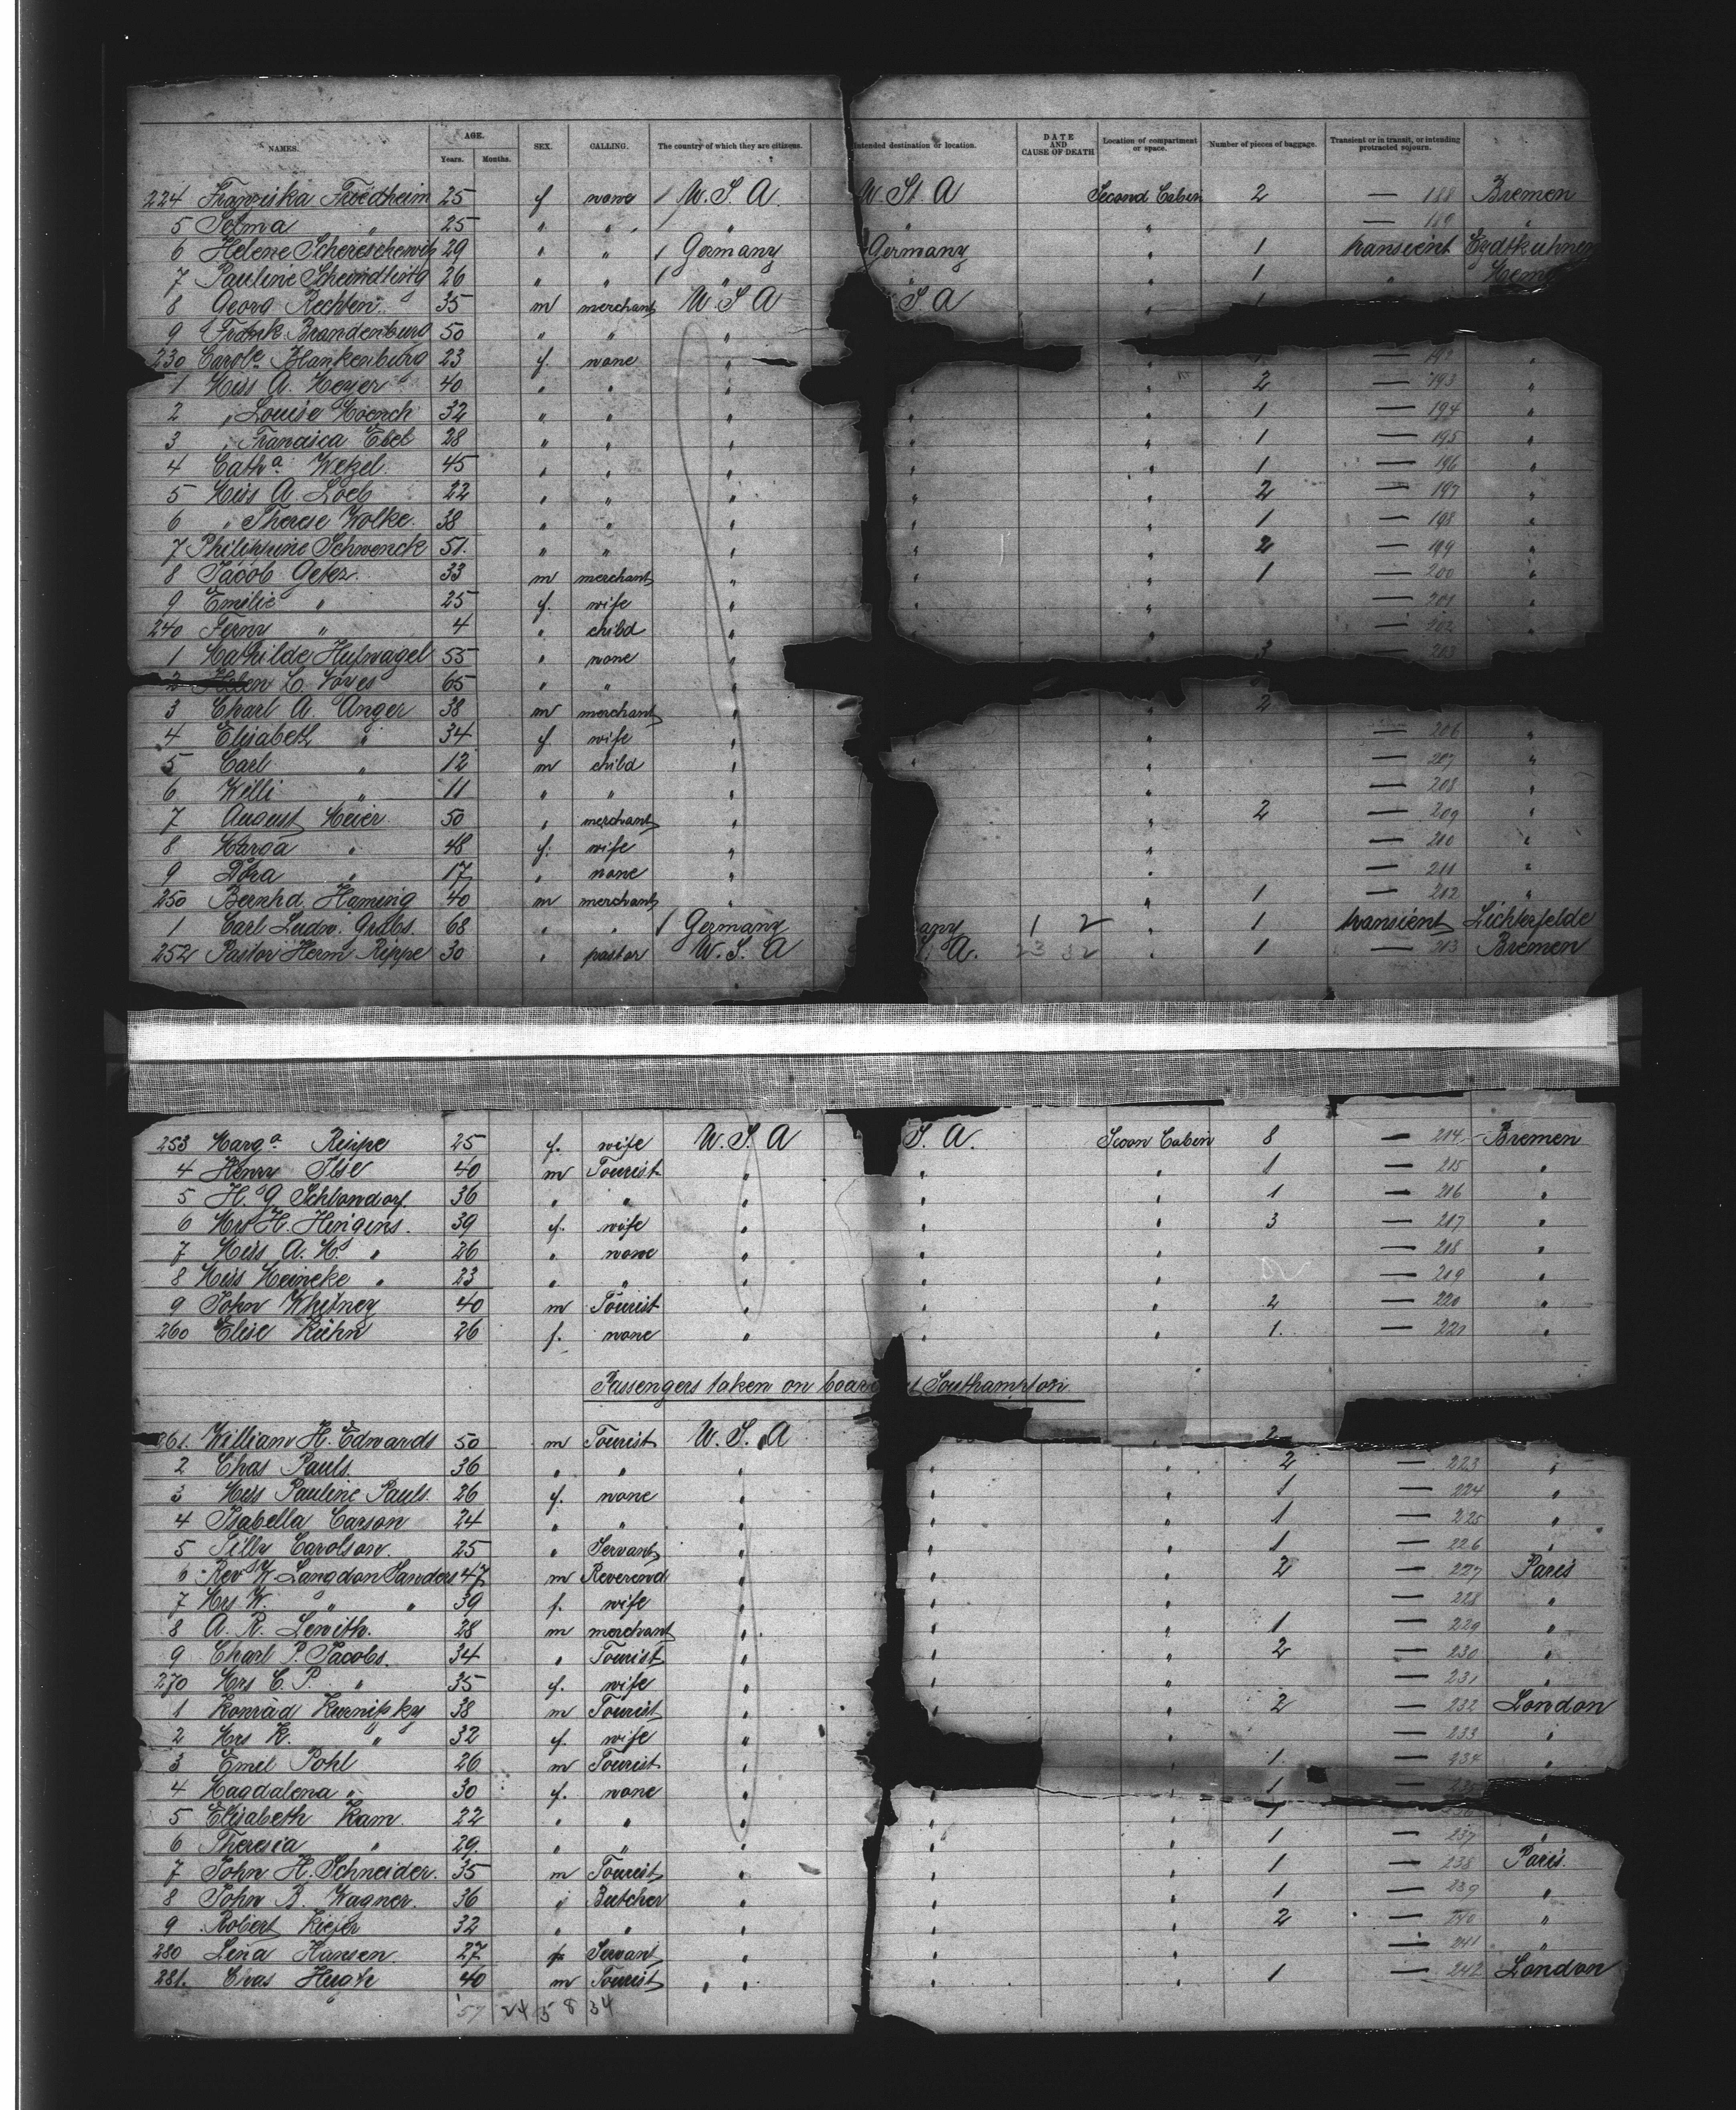 NAMES. AGE. Years. Months. SEX. CALLING. The country of which they are citizens. Intended destination or location. DATE AND CAUSE OF DEATH Location of compartment or space. Number of pieces of baggage. Transient or in transit, or intending protracted sojourn.
224 Franziska Friedheim 25 f none / U. S. A. U. St. A Second Cabin 2 — 188 Bremen
5 Selma " 25 " " " " — 189 "
6 Helene 29 " " / Germany Germany " 1 transient
7 Pauline 26 " " / " " " 1 "
8 Georg Rechten 35 m merchant U. S. A S. A "
9 Frank Brandenburg 50 " " "
230 Carole Blankenburg 23 f. none " " — 192 "
1 Miss A. Meyer 40 " " " " " 2 — 193 "
2 " Louise 32 " " " " " 1 — 194 "
3 " Francisca Ebel 28 " " " " " 1 — 195 "
4 Catha. Wetzel 45 " " " " " 1 — 196 "
5 Miss A. Loeb 22 " " " " " 2 — 197 "
6 " Therese Wolke. 38 " " " " " 1 — 198 "
7 Philippine Schwenck 51. " " " " " 2 — 199 "
8 Jacob Geter. 33 m merchant " " " 1 — 200 "
9 Emilie " 25 f. wife " " " — 201 "
240 Ferny " 4 " child " " " — 202 "
1 Mathilde Hufnagel 55 " none " " 3 — 203
2 Helen C. 65 " " "
3 Charl A. Unger 38 m merchant " " 2
4 Elisabeth " 34 f. wife " " — 206 "
5 Carl " 12 m child " " " — 207 "
6 Willi " 11 " " " " — 208 "
7 August Meier 50 " merchant " " 2 — 209 "
8 Marga " 48 f. wife " " — 210 "
9 Dora " 17 " none " " — 211 "
250 Bernhd. Haming 40 m merchant " " 1 — 212 "
1 Carl Ludw. Grabs. 68 " " / Germany any 1 2 " 1 transient Lichterfelde
252 Pastor Herm Rippe 30 " pastor U. S. A S. A. 23 32 " 1 — 213 Bremen
253 Marga. Rippe 25 f. wife U. S. A S. A. Secon Cabin 8 — 214 Bremen
4 Henry Ilse 40 m Tourist " " " 1 — 215 "
5 H. G. Schlondorf. 36 " " " " " 1 — 216 "
6 Mrs H. Hinigens. 39 f. wife " " " 3 — 217 "
7 Miss A. M. " 26 " none " " " — 218 "
8 Miss Meineke " 23 " " " " " — 219 "
9 John Whitney 40 m Tourist " " " 2 — 220 "
260 Elise Kühn 26 f. none " " " 1. — 221 "
Passengers taken on board at Southampton
261. William H. Edwards 50 m Tourist U. S. A " 2
2 Chas Pauls. 36 " " " " " 2 — 223 "
3 Miss Pauline Pauls. 26 f. none " " " 1 — 224 "
4 Isabella Carson 24 " " " " " 1 — 225 "
5 Tilly Carolson. 25 " Servant " " " 1 — 226 "
6 Rev W. Langdon Sanders 47 m Reverend " " " 2 — 227 Paris
7 Mrs W. " " 39 f. wife " " " — 228 "
8 A. R. Lewith. 28 m merchant " " " 1 — 229 "
9 Charl P. Jacobs. 34 " Tourist " " " 2 — 230 "
270 Mrs C. P. " 35 f. wife " " " — 231 "
1 Konrad 38 m Tourist " " 2 — 232 London
2 Mrs K. " 32 f. wife " " — 233 "
3 Emil Pohl 26 m Tourist " " 1. — 234 "
4 Magdalena " 30 f. none " 1 — 235
5 Elisabeth Kam. 22 " " " " " 1 — 236
6 Theresia " 29. " " " " " 1 — 237 "
7 John H. Schneider. 35 m Tourist " " " 1 — 238 Paris.
8 John B. Wagner. 36 " Butcher " " " 1 — 239 "
9 Robert Kiefer 32 " " " " " 2 — 240 "
280 Lina Hansen. 27 f. Servant " " " — 241 "
281. Chas Hugh 40 m Tourist " " " 1 — 242 London
57 24 5 8 34